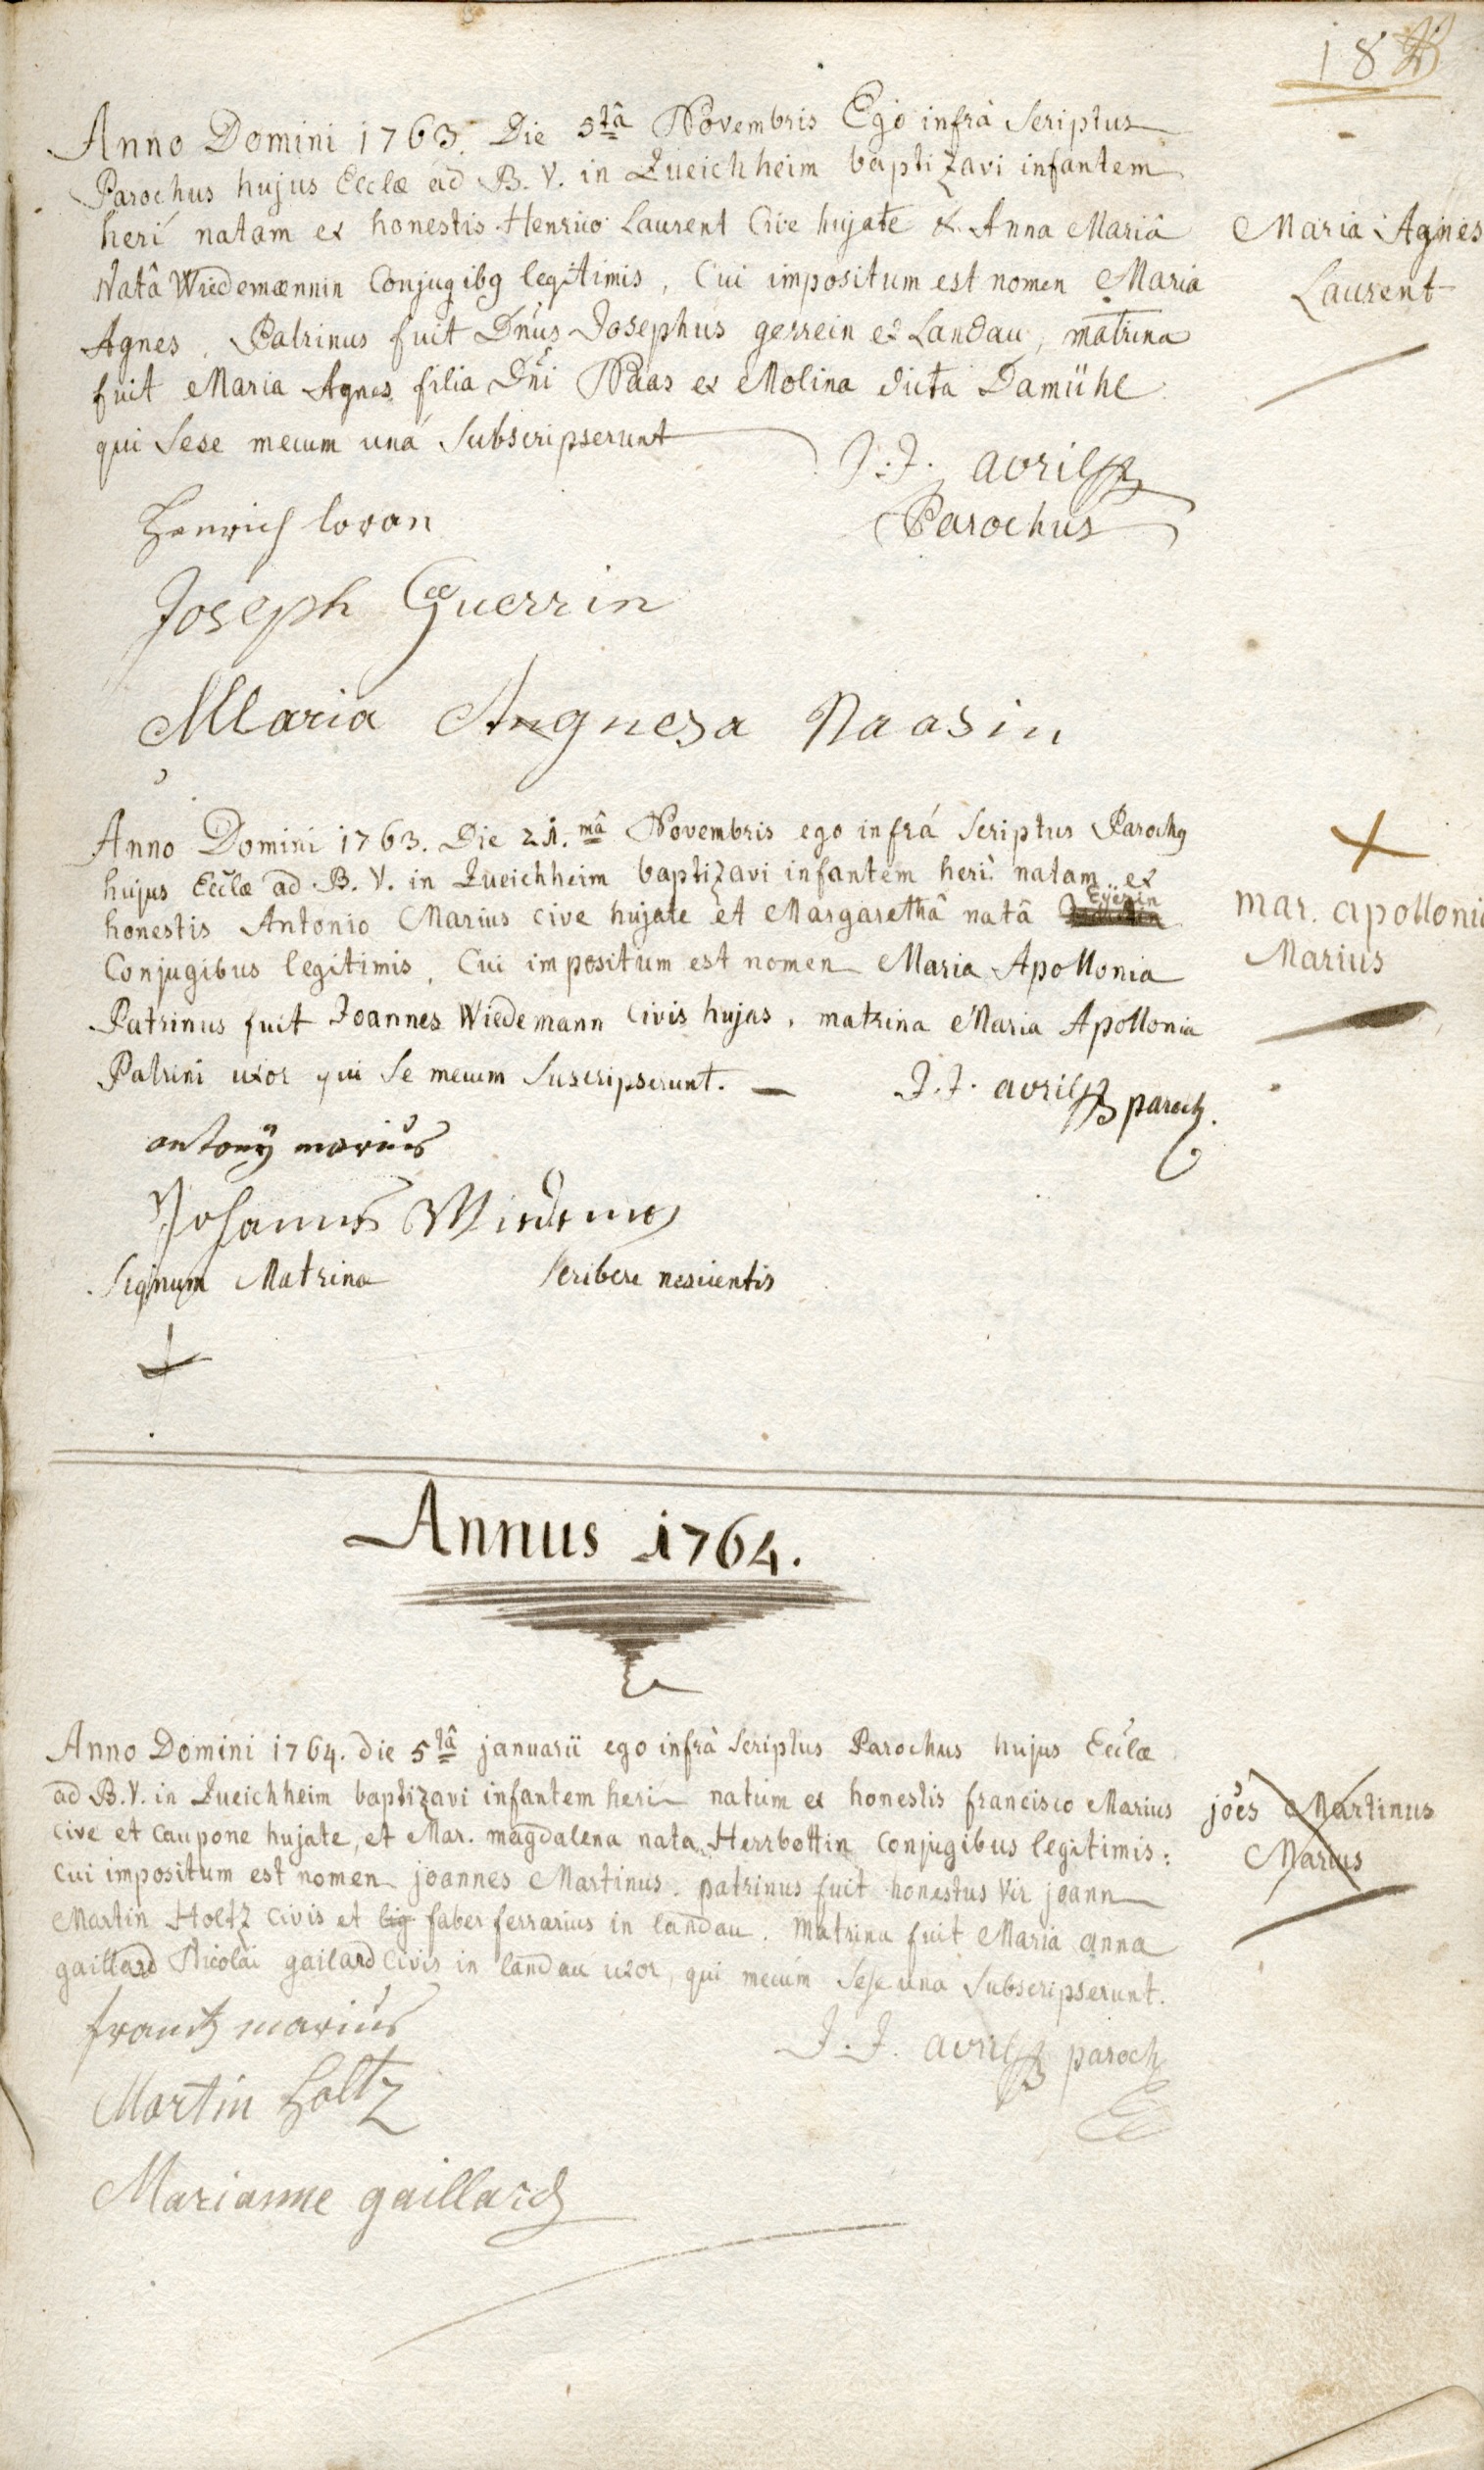 18
Anno Domini 1763. Die 5tâ Novembris Ego infrà Scriptus
Parochus hujus Ecclæ ad B. V. in Queichheim baptizavi infantem
heri natam ex honestis Henrico Laurent Cive hujate & Anna Mariâ
Natâ Wiedemænnin Conjugibg legitimis, Cui impositum est nomen Maria
Agnes. Patrinus fuit Dn̄us Josephus gerrein ex Landau, matrina
fuit Maria Agnes filia Dn̄i Naas ex Molina dicta Damühl
qui Sese mecum unà Subscripserunt
Maria Agnes
Laurent
J. J. avril
Parochus
Henrich loran
Joseph Guerrin
Maria Angnesa Naasin
Anno Domini 1763. Die 21.mâ Novembris ego infrá Scriptus Parochg
hujus Ecclæ ad B. V. in Queichheim baptizavi infantem heri natam ex
honestis Antonio Marius cive hujate et Margarethâ natâ Eyerin
Conjugibus legitimis, Cui impositum est nomen Maria Apollonia
Patrinus fuit Joannes Wiedemann Civis hujas, matrina Maria Apollonia
Patrini uxor qui Se mecum Suscripserunt.
mar. apollonia
Marius
J. J. avril paroch.
antony marius
Johannes Widema
Signum Matrina Scribere nescientis
Annus 1764.
Anno Domini 1764. die 5tâ januarii ego infrà Scriptus Parochus hujus Ecclæ
ad B. V. in Queichheim baptizavi infantem heri natum ex honestis francisco Marius
cive et caupone hujate, et Mar. magdalena nata Herrbottin Conjugibus legitimis:
cui impositum est nomen joannes Martinus. patrinus fuit honestus Vir joann
Martin Holtz civis et lig faber ferrarius in landau. Matrina fuit Maria anna
gaillard Nicolai gailard Civis in landau uxor, qui mecum Sese una Subscripserunt.
jōes Martinus
Marius
J. J. avril paroch
frantz marius
Martin Holtz
Marianne gaillard